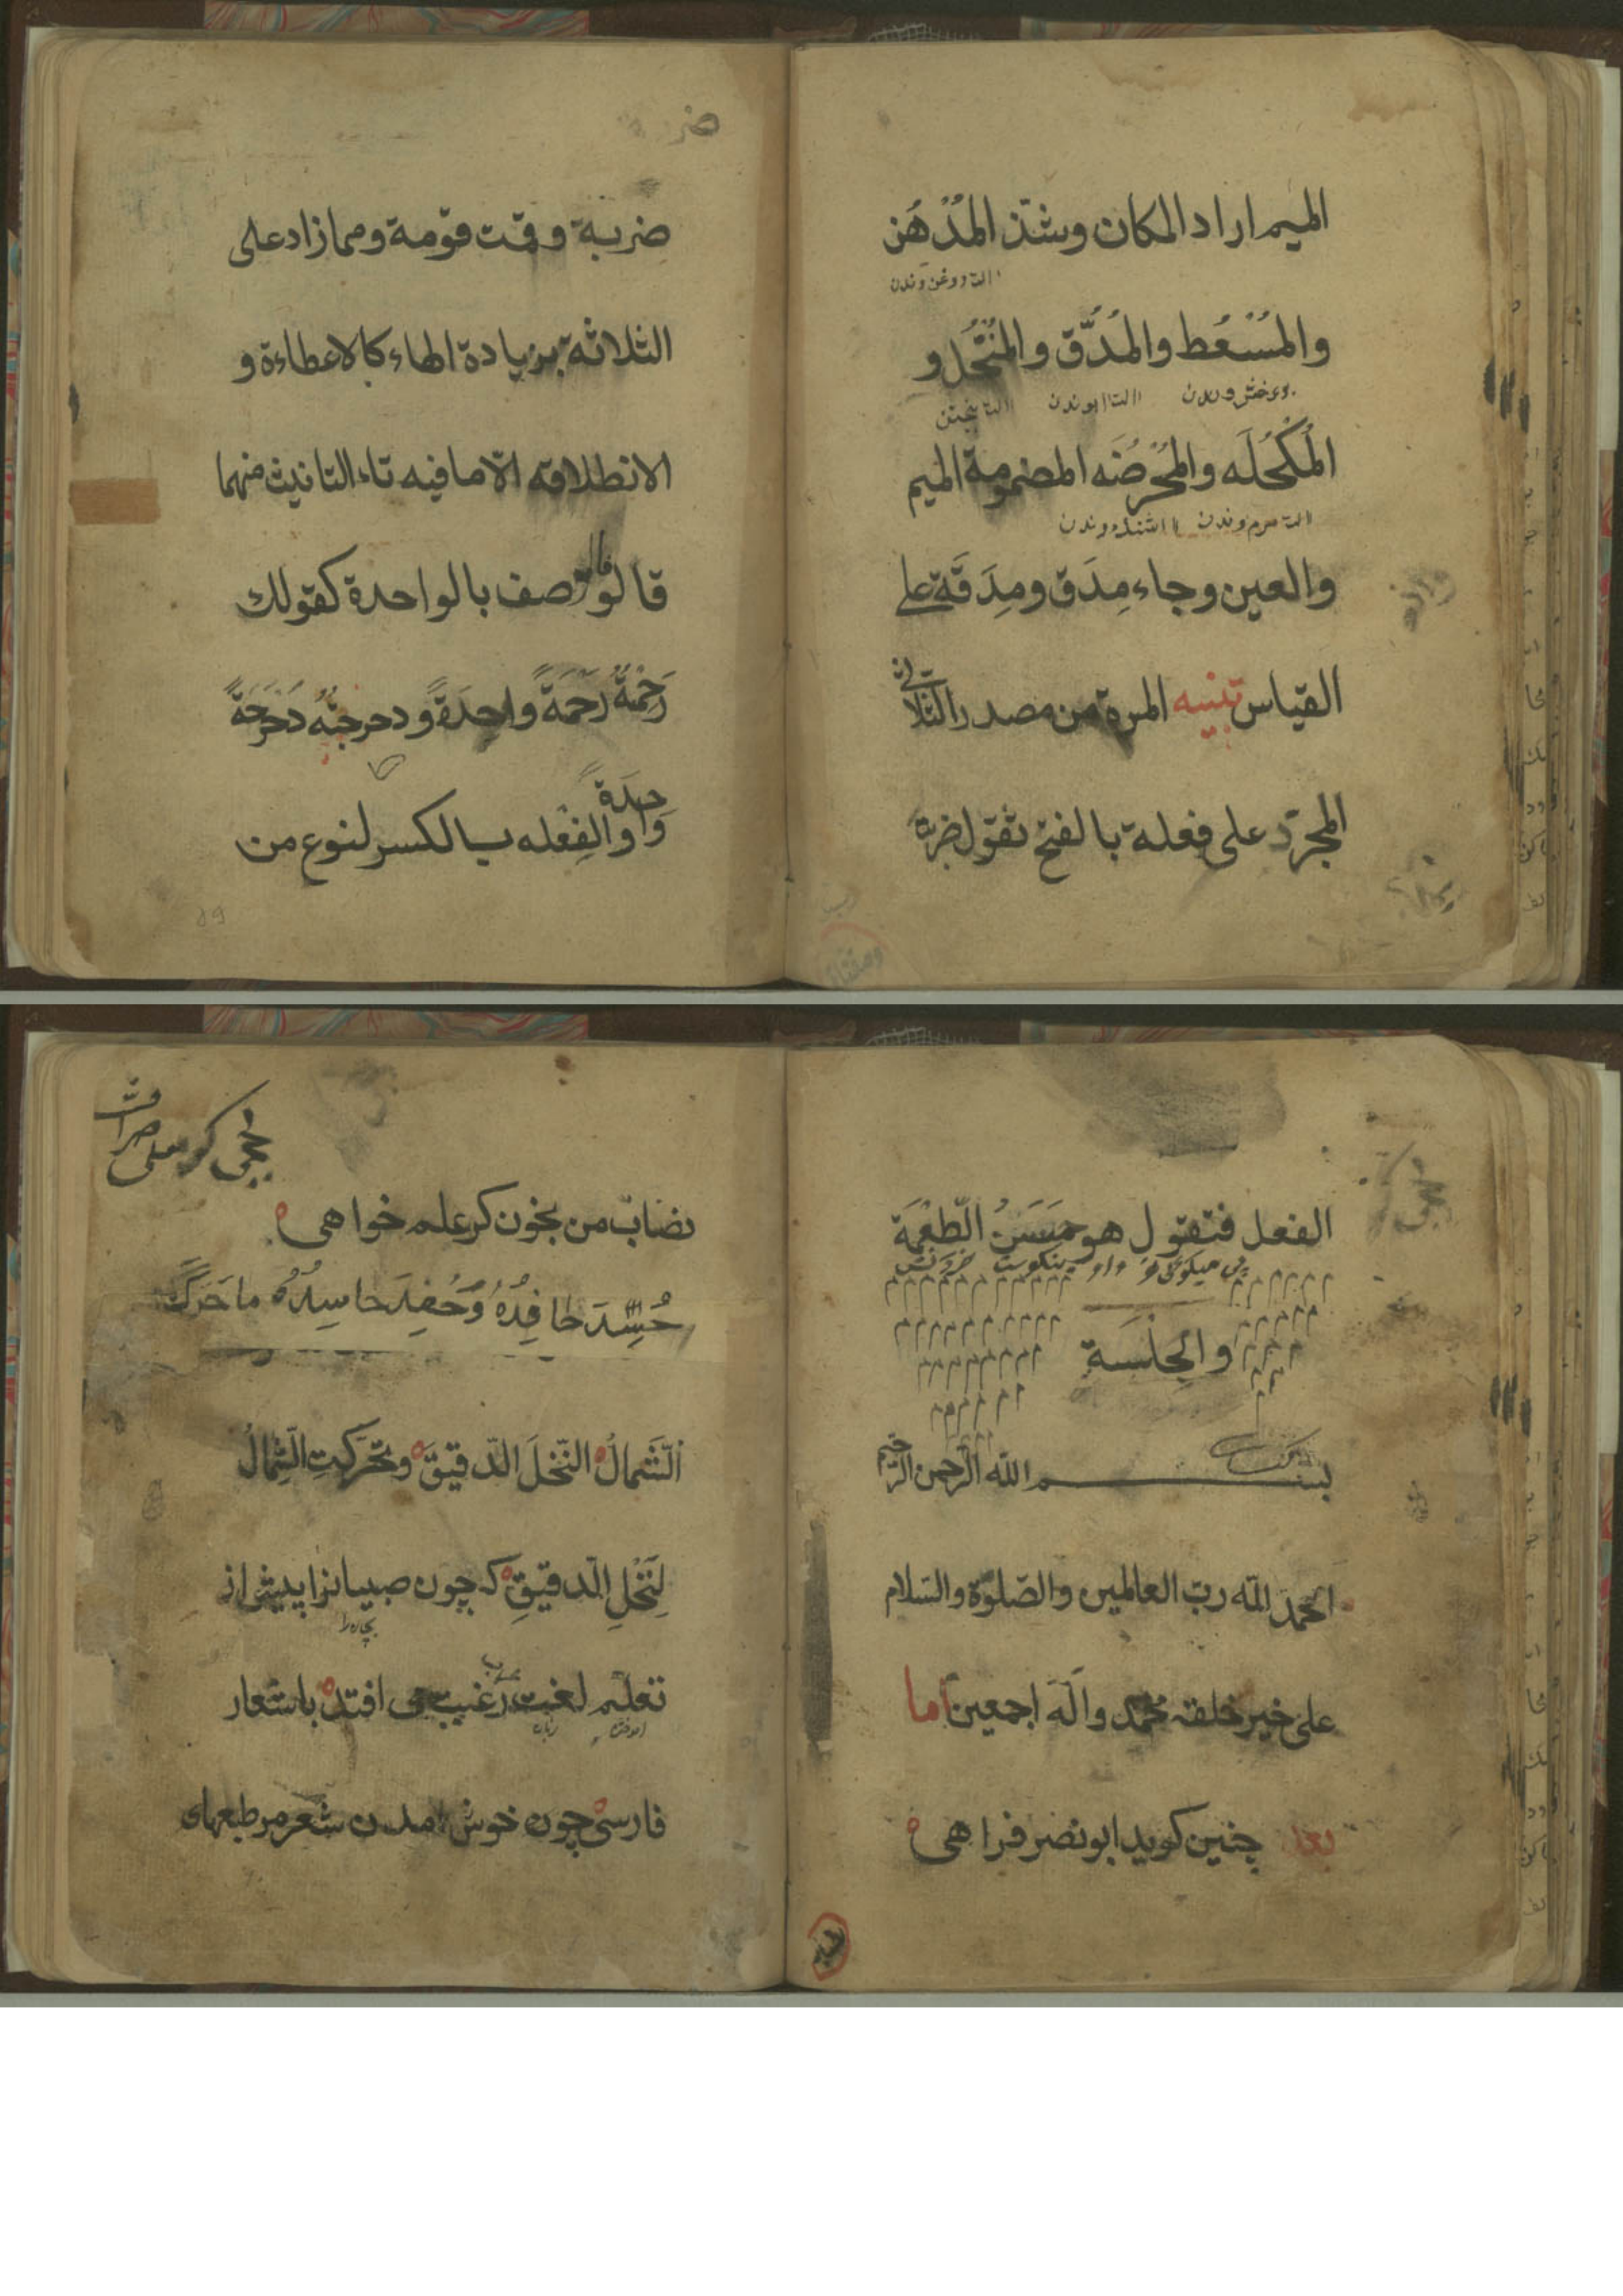 الميم اراد المكان وشذ المُدْهُن
والمُسْعُط والمُدُّق والمُنْخُل و
المُكْحُلَه والمُحْرُضَه المضمومة الميم
والعين وجاء مِدَق ومِدَقَة على
القياس تنبيه المرة من مصدر الثلاثى
المجرّد على فعلة بالفتح تقول ضربته
ضر
ضربة وقمت قومة ومما زاد على
الثلاثة بزيادة الهاء كالاعطاءة و
الانطلاقه الّا ما فيه تاء التانيث منهما
قالوصف بالواحدة كقولك
رَحِمْتُهُ رَحْمَةً واحِدَةً ودحرجتُه دَحْرَجَةً
واحِدَةً والفِعْله بالكسر لنوع من
الفعل فتقول هو حَسَنُ الطِّعْمَة
والجِلْسَة
بسم الله الرّحمن الرّحيم
الحمد للّه ربّ العالمين والصّلوة والسّلام
على خير خلقه محمّد وآله اجمعين اما
بعد چنين كويد ابو نصر فراهى
نصاب من بخون كر علم خواهى
حُسِّدَ حَافِدُهُ وَحُفِدَ حاسِدُهُ ما حَرَّكَ
الشَّمالُ النّخلَ الدّقيقَ وتحَرّكتِ الشِّمالُ
لِنَخْلِ الدّقيقِ كه چون صبيانرا پيش از
بچه‌ را
تعلّم لغت عرب رغبت مى افتد باشعار
فارسى چون خوش امدن شعر مر طبعهاى